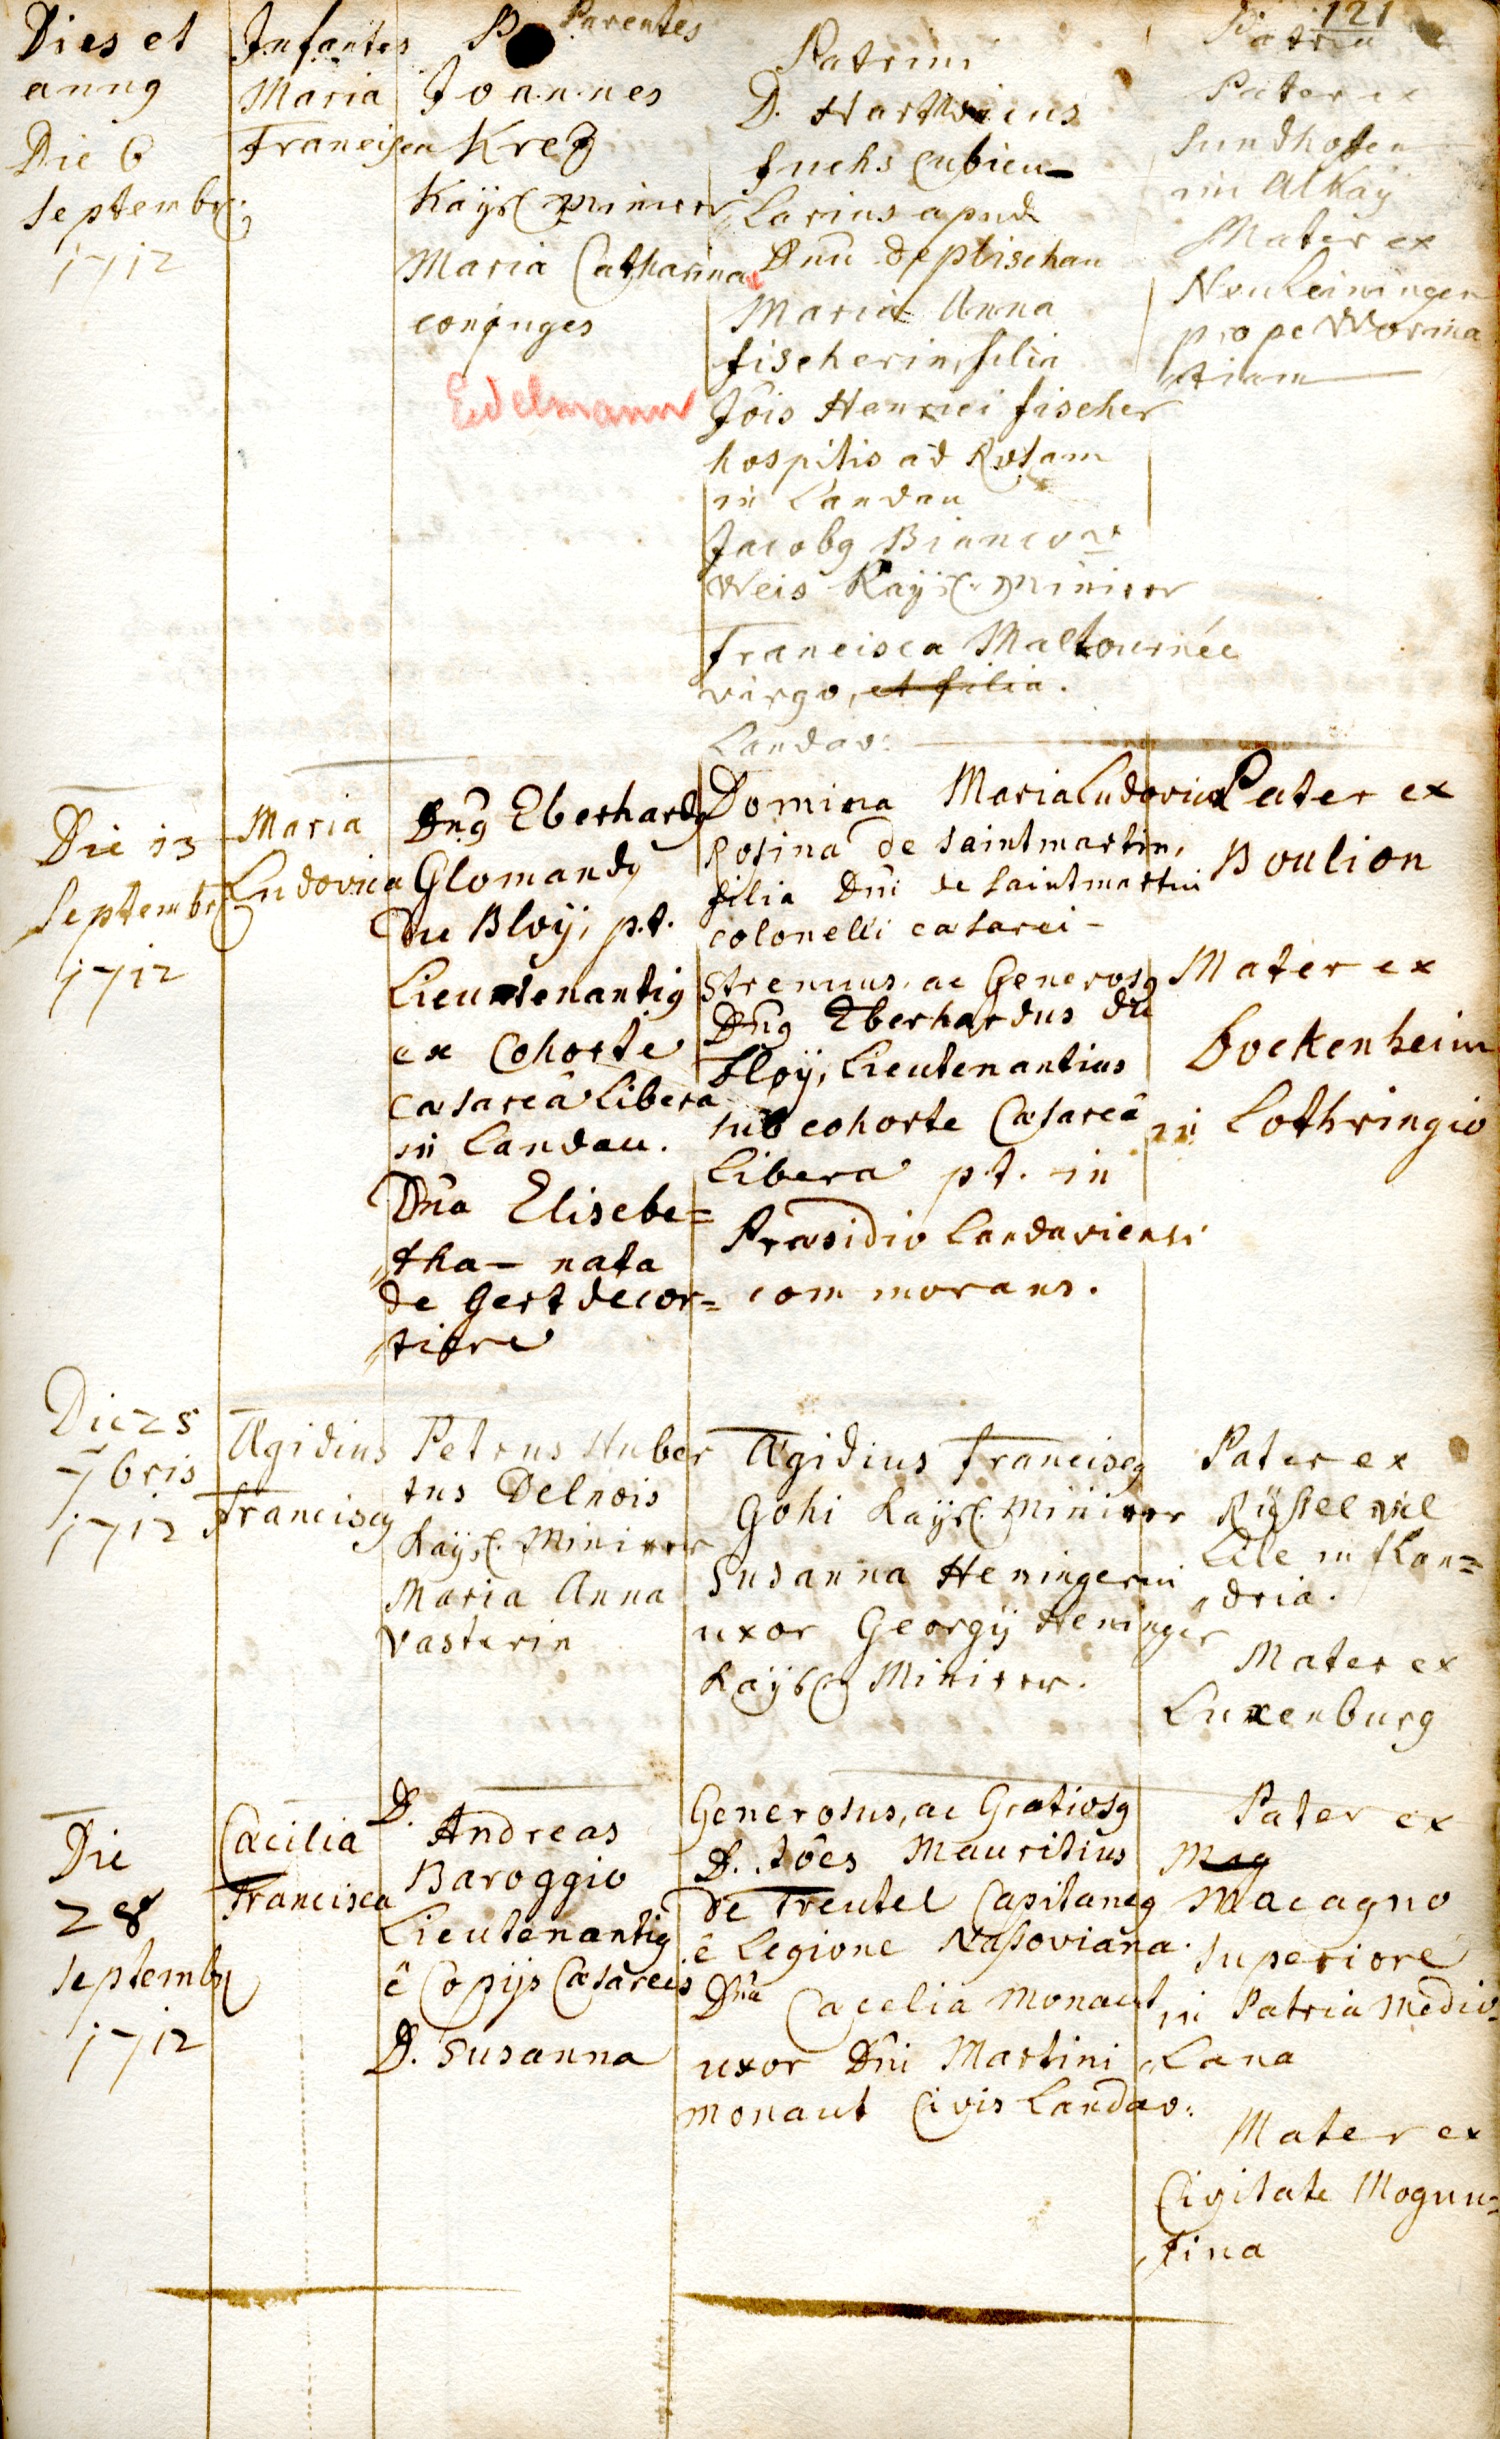 121
Dies et
anng
Infantes
Parentes
Patrini
Patria
Die 6
Septembr:
1712
Maria
Francisca
Joannes
Krez
Kaÿs Minirer
Maria Catharina
conjuges
Edelmann
D. Hartwicus
fuchs Cubicu-
Larius apud
Dnu
Maria Anna
fischerin, filia
Jois Henrici fischer
hospitis ad Rosam
in Landau
Jacobg
Weis Kaÿs. Minirer
Francisca Maltournée
virgo, et filia.
Landav:
Pater ex
Sundhofen
im Alkaÿ
Mater ex
Neuleiningen
prope Worma
tiam
Die 13
Septembr
1712
Maria
Ludovica
Dng Eberhardg
Glomandg
du Bloÿ, p.t.
Lieutenantig
ex Cohorte
Cæsareâ Libera
in Landau.
Dna Elisebe=
tha - nata
de Gert decor=
tiere
Domina Maria Ludovica
Rosina de Saintmartin,
filia Dni de Saintmartin
colonelli cæsarei -
Strenuus, ac Generosg
Dng Eberhardus du
Bloÿ, Lieutenantius
sub cohorte Cæsareâ
Libera p.t. in
Præsidio Landaviensi
commorans.
Pater ex
Boulion
Mater ex
Bockenheim
in Lothringio
Die 25
7bris
1712
Ægidius
Franciscg
Petrus Huber
tus Delnois
Kaÿs. Minirer
Maria Anna
Vasterin
Ægidius Franciscg
Gohi Kaÿs. Minirer
Susanna Heningerin
uxor Georgÿ Heninger
Kaÿs Minirer.
Pater ex
Rÿssel vel
Lile in flan=
dria.
Mater ex
Luxenburg
Die
28
Septembr
1712
Cæcilia
Francisca
D.
Andreas
Baroggio
Lieutenantig
ê Copijs Cæsareis
D. Susanna
Generosus, ac Gratiosg
D. Joês Mauritius
de Treutel Capitaneg
ê Legione Nassoviana.
Dna Cæcelia Monaut
uxor Dni Martini
Monaut Civis Landav:
Pater ex
Mag
Macagno
Superiore
in Patria Medio-
Lana
Mater ex
Civitate Mogun=
tina